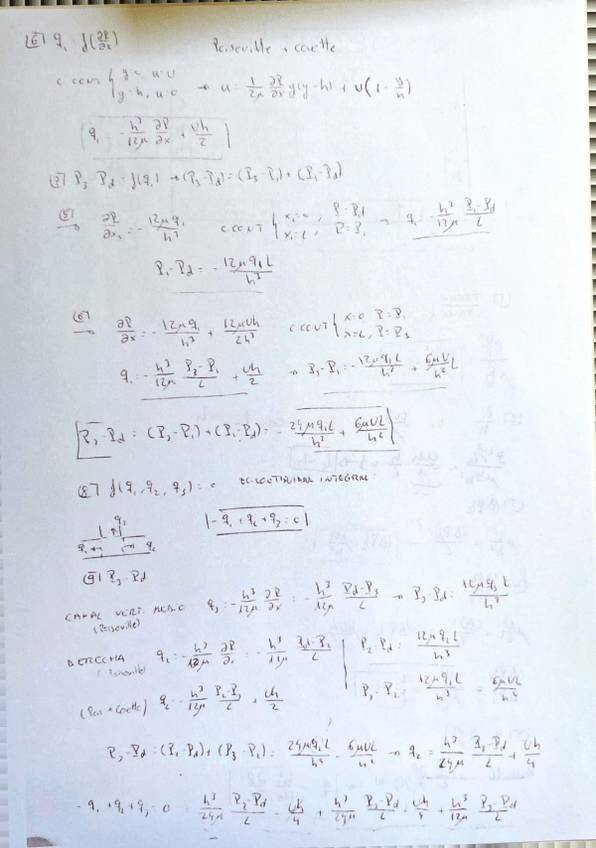 6) q₁ = f(∂P/∂x) Poiseville + couette
C CONT { y=0, u=U → u = 1/2μ ∂P/∂x y(y-h) + U(1 - y/h)
y=h, u=0
q₁ = -h³/12μ ∂P/∂x + Uh/2
7) P₃-Pd = f(q₁) → (P₃-Pd) = (P₃-P₁) + (P₁-Pd)
(5) → ∂P/∂x₁ = -12μq₁/h³ C CONT { x₁=0, P=Pd → q₁ = -h³/12μ P₁-Pd/L
x₁=L, P=P₁
P₁-Pd = -12μq₁L/h³
(6) → ∂P/∂x = -12μq₁/h³ + 12μUh/2h³ C CONT { x=0 P=P₁
x=L, P=P₃
q₁ = -h³/12μ P₃-P₁/L + Uh/2 → P₃-P₁ = -12μq₁L/h³ + 6μUL/h²
P₃-Pd = (P₃-P₁) + (P₁-Pd) = -24μq₁L/h³ + 6μUL/h²
8) f(q₁, q₂, q₃) = 0 EC CONTINUIDAD INTEGRAL
q₃
q₁ q₂ -q₁ + q₂ + q₃ = 0
9) P₃-Pd
CANAL VERT. MEDIO q₃ = -h³/12μ ∂P/∂x = -h³/12μ Pd-P₃/L → P₃-Pd = 12μq₃L/h³
(Poiseville)
DERECHA q₂ = -h³/12μ ∂P/∂x = -h³/12μ Pd-P₂/L P₂-Pd = 12μq₂L/h³
(Poiseville)
(Pois + Couette) q₂ = -h³/12μ P₂-P₃/L + Uh/2 P₃-P₂ = 12μq₂L/h³ - 6μUL/h²
P₃-Pd = (P₂-Pd) + (P₃-P₂) = 24μq₂L/h³ - 6μUL/h² → q₂ = h³/24μ P₃-Pd/L + Uh/4
-q₁ + q₂ + q₃ = 0 = h³/24μ P₃-Pd/L - Uh/4 + h³/24μ P₃-Pd/L + Uh/4 + h³/12μ P₃-Pd/L